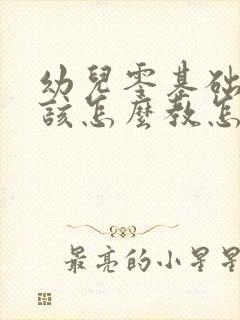 幼兒零基础
該怎麼教怎
最亮的小星星